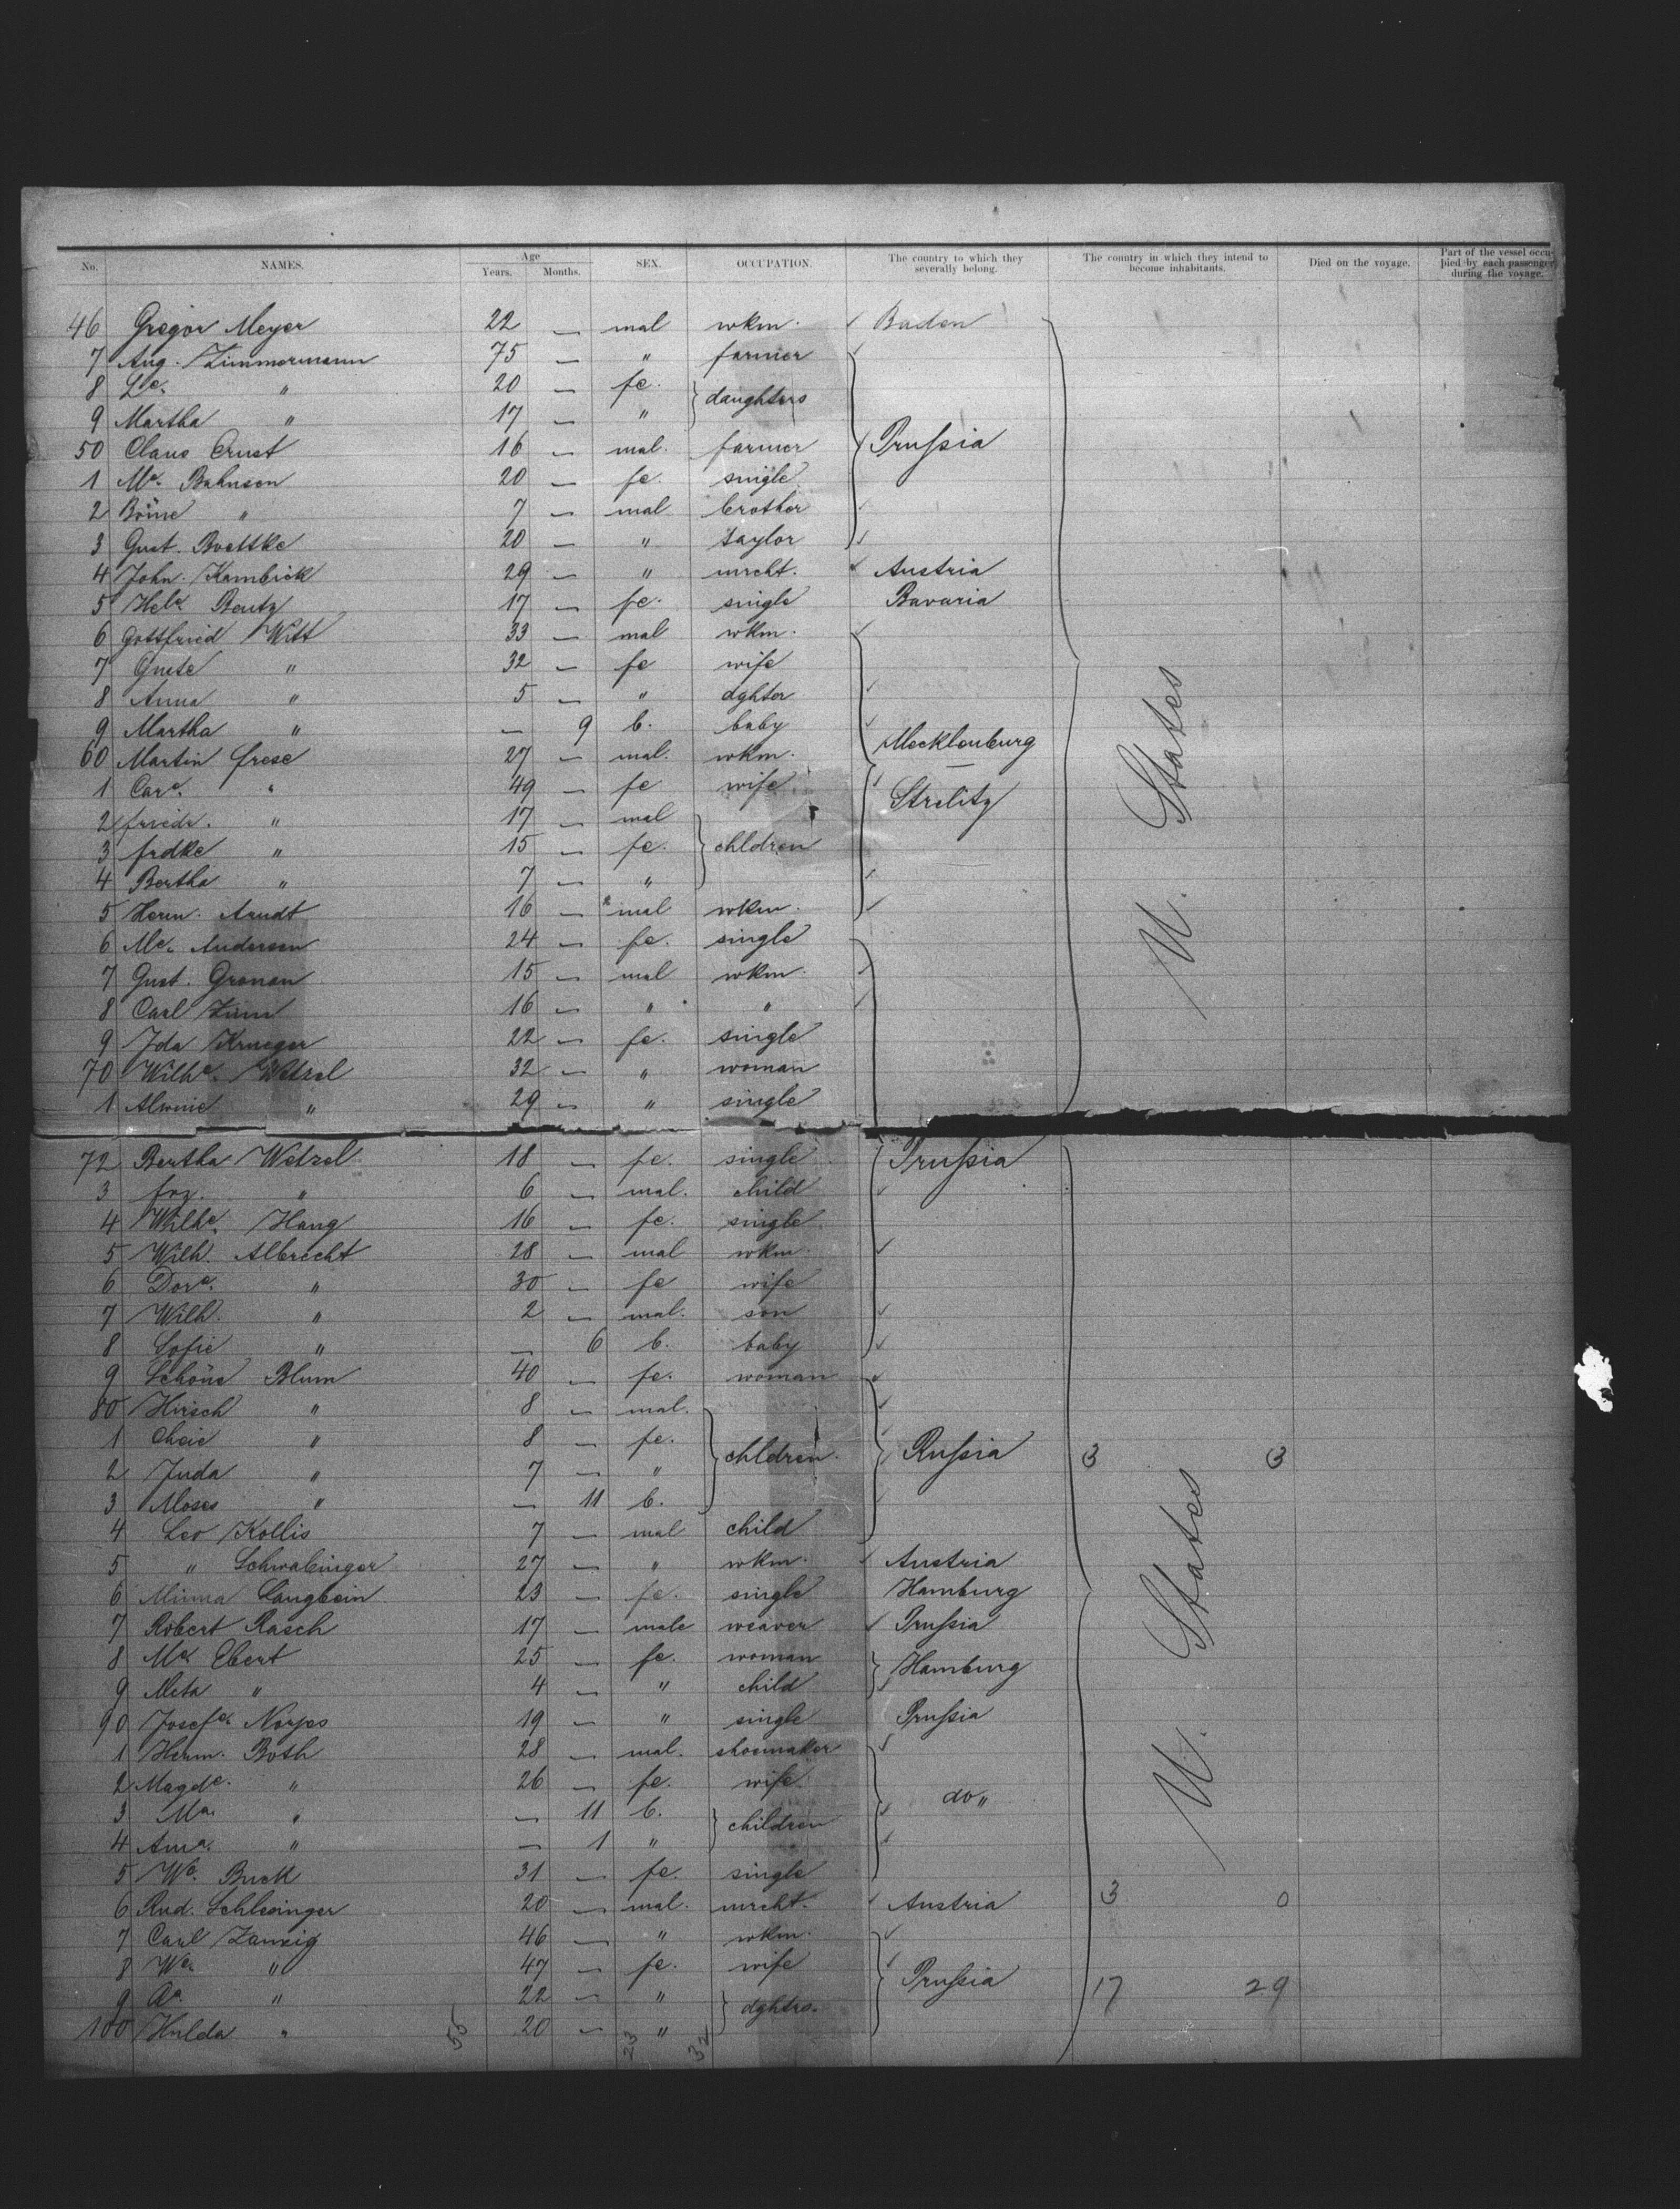 No. NAMES. Age Years. Months. SEX. OCCUPATION. The country to which they severally belong. The country in which they intend to become inhabitants. Died on the voyage. Part of the vessel occupied by each passenger during the voyage.
46 Gregor Meyer 22 — mal wkm. Baden
7 Aug. Zimmermann 75 — " farmer
8 Le. " 20 — fe. daughters
9 Martha " 17 — "
50 Claus Ernst 16 — mal. farmer Prußia
1 Me. Bahnsen 20 — fe. single
2 Böine " 7 — mal brother
3 Gust. Boettke 20 — " taylor
4 John. Kambick 29 — " mrcht. Austria
5 Hele Bentz 17 — fe. single Bavaria
6 Gottfried Witt 33 — mal wkm.
7 Guste " 32 — fe wife
8 Anna " 5 — " dghter
9 Martha " — 9 b. baby
60 Martin Frese 27 — mal. wkm. Mecklenburg
1 Care. " 49 — fe wife Strelitz
2 Friedr. " 17 — mal
3 Frdke " 15 — fe. chldren
4 Bertha " 7 — "
5 Herm. Arndt 16 — mal wkm.
6 Me. Andersen 24 — fe. single
7 Gust. Gronau 15 — mal wkm.
8 Carl Zinn 16 — " "
9 Ida Krueger 22 — fe. single
70 Wilhe. Wetzel 32 — " woman
1 Alwine " 29 — " single
U. States
72 Bertha Wetzel 18 — fe. single Prußia
3 Frz. " 6 — mal. child
4 Wilhe. Haug 16 — fe. single
5 Wilh. Albrecht 28 — mal wkm.
6 Dore. " 30 — fe wife
7 Wilh. " 2 — mal. son
8 Sofie " — 6 b. baby
9 Schöne Blum 40 — fe. woman
80 Hirsch " 8 — mal.
1 Cheie " 8 — fe. chldren. Rußia 3 3
2 Juda " 7 — "
3 Moses " — 11 b.
4 Leo Kollis 7 — mal child
5 " Schwabinger 27 — " wkm. Austria
6 Minna Langbein 23 — fe. single Hamburg
7 Robert Rasch 17 — male weaver Prußia
8 Me Ebert 25 — fe. woman Hamburg
9 Meta " 4 — " child
90 Josefe. Norjes 19 — " single Prußia
1 Herm. Both 28 — mal. shoemaker
2 Magde. " 26 — fe. wife do "
3 Ma. " — 11 b. children
4 Ana. " — 1 "
5 We. Buck 31 — fe. single
6 Rud. Schlesinger 20 — mal. mrcht. Austria 3 0
7 Carl Zanzig 46 — " wkm.
8 We. " 47 — fe. wife
9 Ae. " 22 — " dghtrs. Prußia 17 29
100 Hulda " 20 — "
U. States
55 23 32